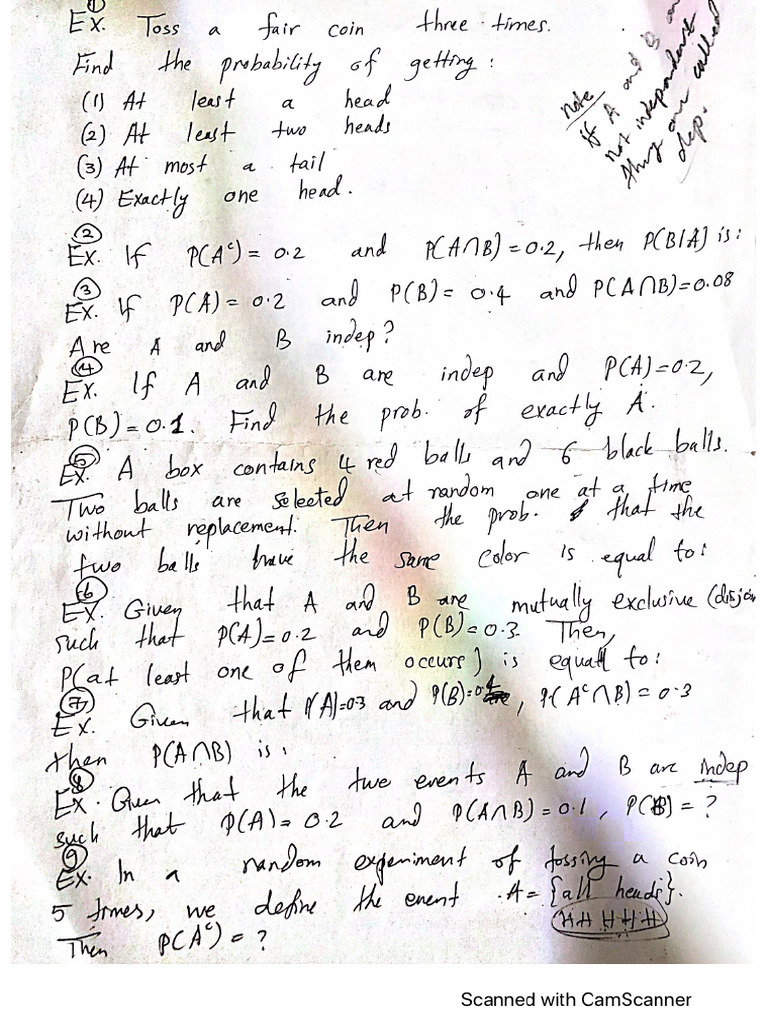 ①
Ex. Toss a fair coin three times.
Find the probability of getting :
(1) At least a head
(2) At least two heads
(3) At most a tail
(4) Exactly one head.
note
if A and B are
not independent
they are called
dep.
②
Ex. If P(Aᶜ) = 0.2 and P(A∩B) = 0.2, then P(B|A) is :
③
Ex. If P(A) = 0.2 and P(B) = 0.4 and P(A∩B)=0.08
Are A and B indep?
④
Ex. If A and B are indep and P(A)=0.2,
P(B)=0.1. Find the prob. of exactly A.
⑤
Ex. A box contains 4 red balls and 6 black balls.
Two balls are selected at random one at a time
without replacement. Then the prob. that the
two balls have the same color is equal to:
⑥
Ex. Given that A and B are mutually exclusive (disjoin
such that P(A)=0.2 and P(B)=0.3. Then,
P(at least one of them occurs) is equal to:
⑦
Ex. Given that P(A)=0.3 and P(B)=0.4, P(Aᶜ∩B) = 0.3
then P(A∩B) is :
⑧
Ex. Given that the two events A and B are indep
such that P(A)= 0.2 and P(A∩B) = 0.1, P(B) = ?
⑨
Ex. In a random experiment of tossing a coin
5 times, we define the event A = {all heads}.
HHHHH
Then P(Aᶜ) = ?
Scanned with CamScanner